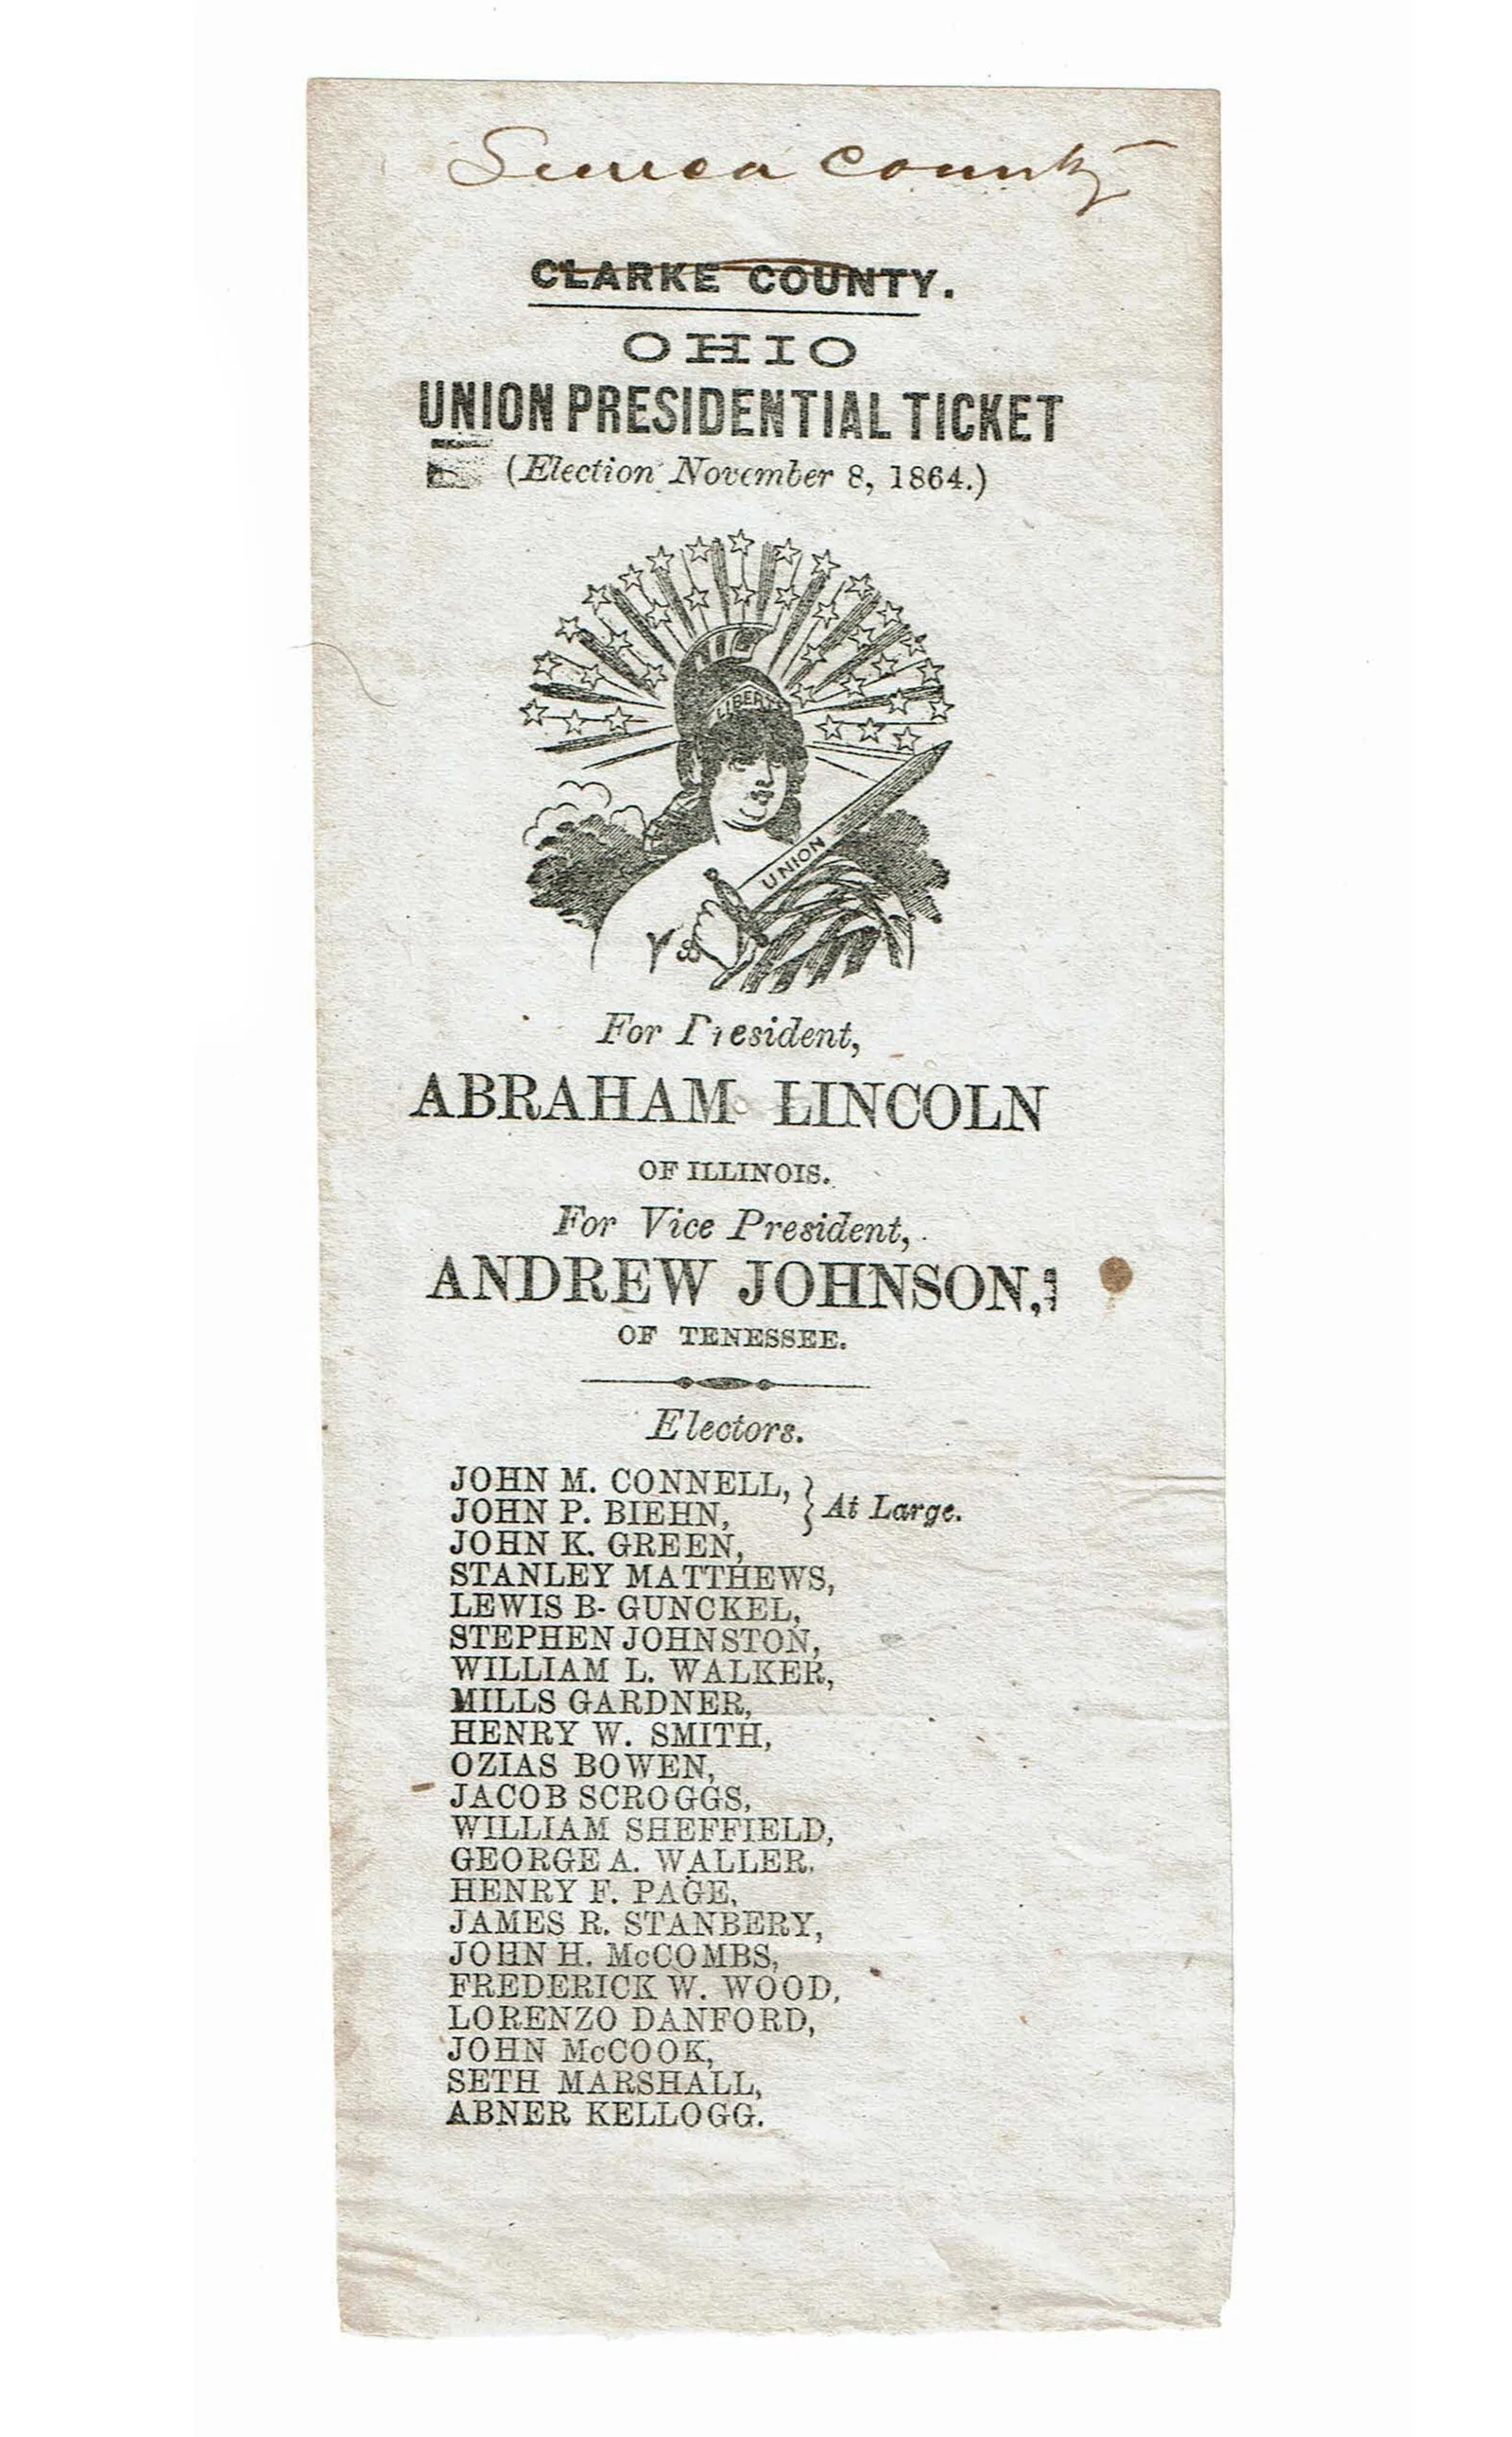 Seneca County
CLARKE COUNTY.
OHIO
UNION PRESIDENTIAL TICKET
(Election November 8, 1864.)
LIBERTY
UNION
For President,
ABRAHAM LINCOLN
OF ILLINOIS.
For Vice President,
ANDREW JOHNSON,
OF TENESSEE.
Electors.
JOHN M. CONNELL,
JOHN P. BIEHN, } At Large.
JOHN K. GREEN,
STANLEY MATTHEWS,
LEWIS B- GUNCKEL,
STEPHEN JOHNSTON,
WILLIAM L. WALKER,
MILLS GARDNER,
HENRY W. SMITH,
OZIAS BOWEN,
JACOB SCROGGS,
WILLIAM SHEFFIELD,
GEORGE A. WALLER,
HENRY F. PAGE,
JAMES R. STANBERY,
JOHN H. McCOMBS,
FREDERICK W. WOOD,
LORENZO DANFORD,
JOHN McCOOK,
SETH MARSHALL,
ABNER KELLOGG.